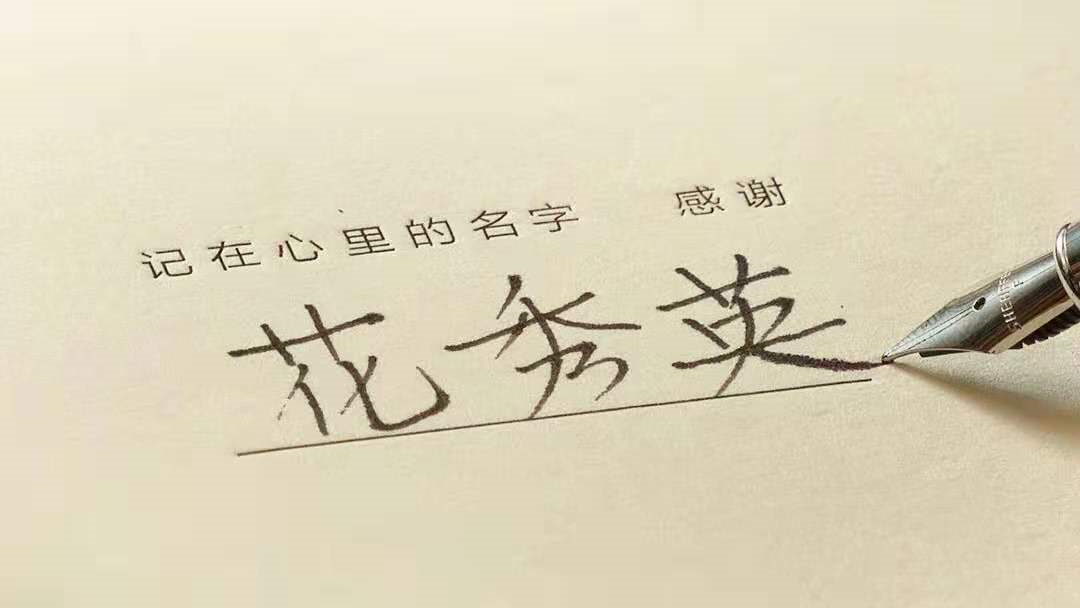 记在心里的名字 感谢
花秀英